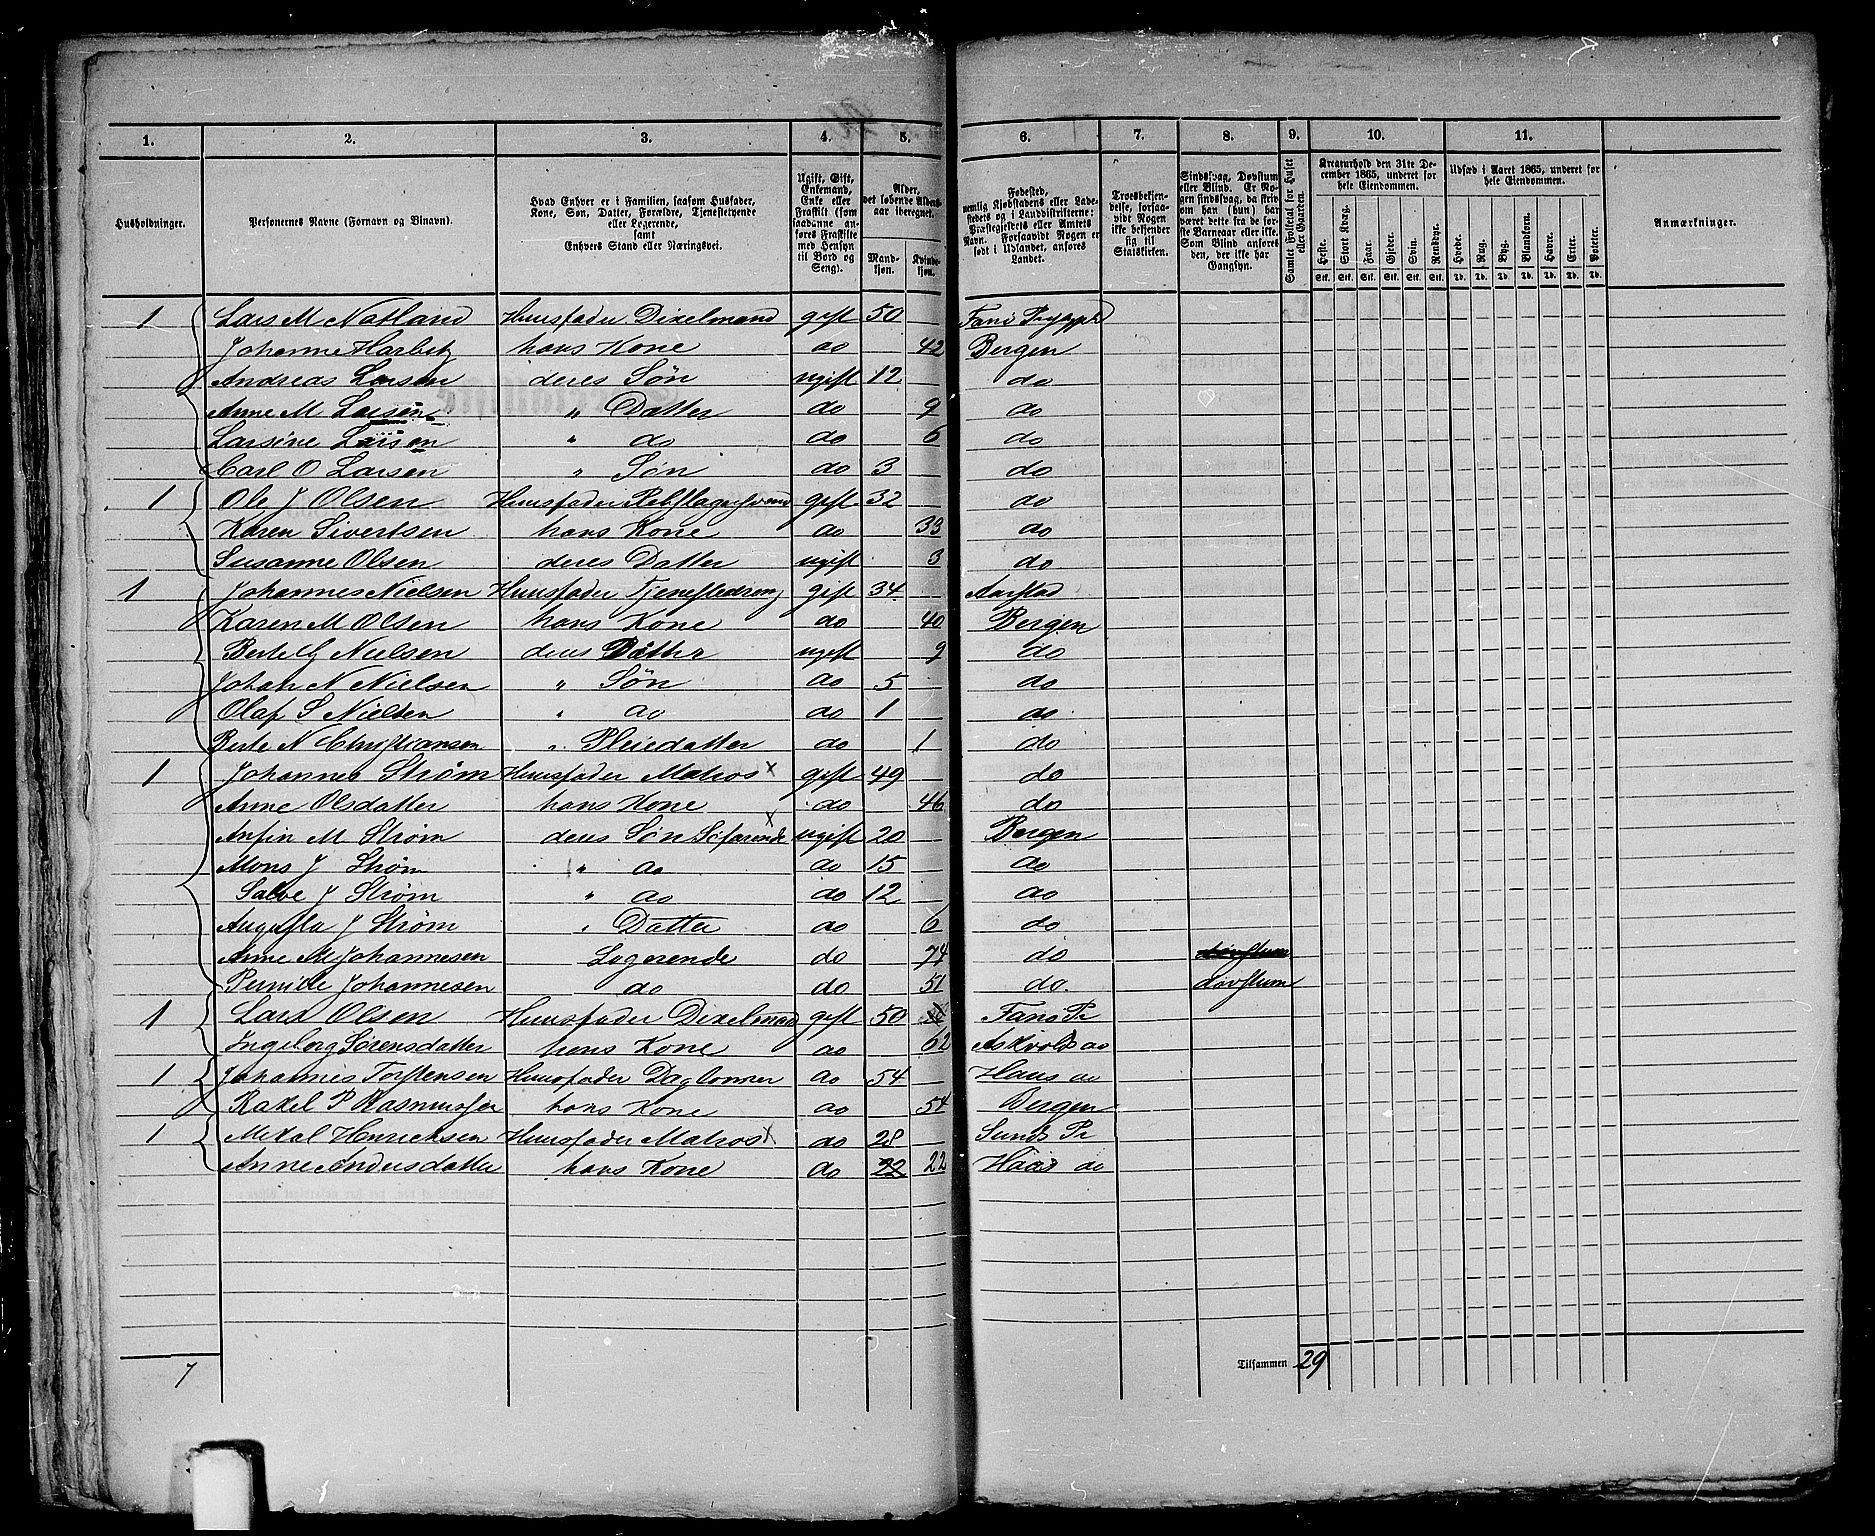 1. 2. 3. 4. 5. 6. 7. 8. 9. 10. 11.
Husholdninger.
Personernes Navne (Fornavn og Tilnavn).
Hvad Enhver er i Familien, saasom Husfader,
Kone, Søn, Datter, Forældre, Tjenestetyende
eller Logerende,
samt
Enhvers Stand eller Næringsvei.
Ugift, Gift,
Enkemand,
Enke eller
Fraskilt (som
saadanne an-
føres Fraskilte
med Hensyn
til Bord og
Seng).
Alder,
det løbende Alders-
aar iberegnet.
Mand-
kjøn.
Kvinde-
kjøn.
Fødested,
nemlig Kjøbstadens eller Lade-
stedets og i Landdistrikterne:
Præstegjeldets eller Amtets
Navn. Forsaavidt Nogen er
født i Udlandet, anføres
Landet.
Troesbekjen-
delse, forsaa-
vidt Nogen
ikke bekjender
sig til
Statskirken.
Sindssvag, Døvstum
eller Blind. Er No-
gen sindssvag, da skriv
om han (hun) har
været dette fra de før-
ste Barneaar eller ikke.
Som Blind anføres
den, der ikke har
Gangsyn.
Samlet Folketal for Huset
eller Gaarden.
Kreaturhold den 31te De-
cember 1865, underet for
hele Eiendommen.
Heste. Stort Kvæg. Faar. Gjeder. Svin. Rensdyr.
Stk. Stk. Stk. Stk. Stk. Stk.
Udsæd i Aaret 1865, underet for
hele Eiendommen.
Hvede. Rug. Byg. Blandkorn. Havre. Erter. Poteter.
Td. Td. Td. Td. Td. Td. Td.
Anmærkninger.
1 Lars M Natland Huusfader Dixelmand gift 50 Fane
Johanne Harbitz hans Kone do 42 Bergen
Andreas Larsen deres Søn ugift 12 do
Anne M Larsen " Datter do 9 do
Larsine Larsen " do do 6 do
Carl O Larsen " Søn do 3 do
1 Ole J Olsen Huusfader Rebslagersvend gift 32 do
Karen Sivertsen hans Kone do 33 do
Susanne Olsen deres Datter ugift 3 do
1 Johannes Nielsen Huusfader Tjenestedreng gift 34 Aarstad
Karen M Olsen hans Kone do 40 Bergen
Berte G Nielsen deres Datter ugift 9 do
Johan N Nielsen " Søn do 5 do
Olaf S Nielsen " do do 1 do
Berte N Christiansen " Pleiedatter do 1 do
1 Johannes Strøm Huusfader Matros x gift 49 do
Anne Olsdatter hans Kone do 46 do
Anfin M Strøm deres Søn Søfarende x ugift 20 Bergen
Mons J Strøm " do do 15 do
Salve J Strøm " do do 12 do
Augusta J Strøm " Datter do 6 do
Anne M Johannesen Logerende do 74 do døvstum
Pernille Johannesen do do 51 do døvstum
1 Lars Olsen Huusfader Dixelmand gift 50 Fane Pr
Ingeborg Sørensdatter hans Kone do 62 Askvold do
1 Johannes Torstensen Huusfader Daglønner do 54 Haus do
Rakel P Rasmussen hans Kone do 54 Bergen
1 Mikal Henricksen Huusfader Matros x do 28 Sunds Pr
Anne Andersdatter hans Kone do 22 22 Haus do
7
Tilsammen 29